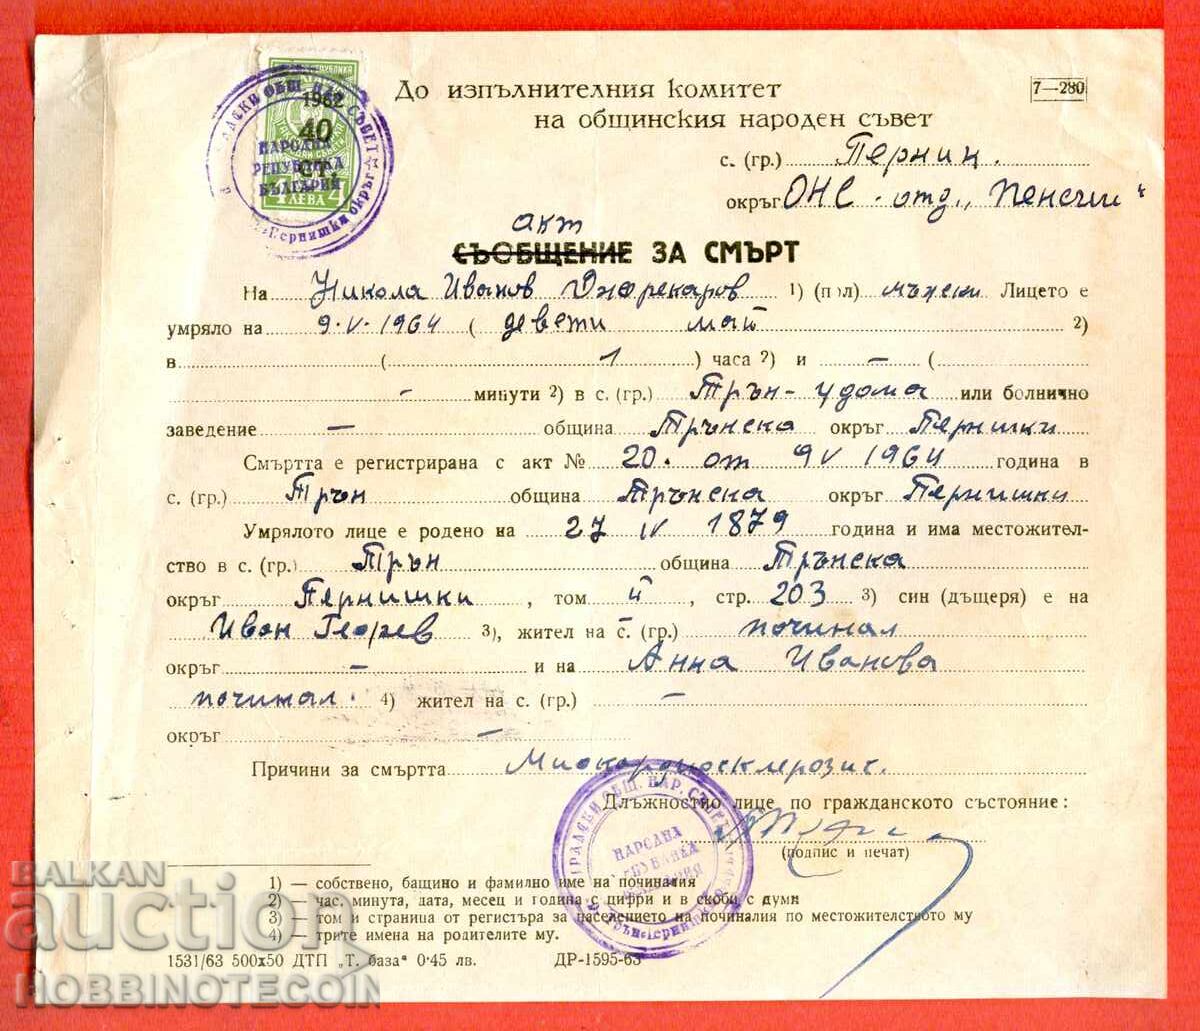 До изпълнителния комитет
7—280
на общинския народен съвет
с. (гр.) Перник.
окръг ОНС - отд. „Пенсии“
акт
СЪОБЩЕНИЕ ЗА СМЪРТ
На Никола Иванов 1) (пол) мъжски Лицето е
умряло на 9.V.1964 ( девети май 2)
в ( 1 ) часа 2) и — (
- минути 2) в с. (гр.) Трън - у дома или болнично
заведение — община Трънска окръг Пернишки
Смъртта е регистрирана с акт № 20. от 9 V 1964 година в
с. (гр.) Трън община Трънска окръг Пернишки
Умрялото лице е родено на 27 IV 1879 година и има местожител-
ство в с. (гр.) Трън община Трънска
окръг Пернишки, том II, стр. 203 3) син (дъщеря) е на
Иван Георев 3), жител на с. (гр.) починал
окръг — и на Анна Иванова
починал. 4) жител на с. (гр.) —
окръг —
Причини за смъртта Миокардиосклерозис.
Длъжностно лице по гражданското състояние:
(подпис и печат)
1) — собствено, бащино и фамилно име на починалия
2) — час, минута, дата, месец и година с цифри и в скоби с думи
3) — том и страница от регистъра за населението на починалия по местожителството му
4) — трите имена на родителите му.
1531/63 500х50 ДТП „Т. база“ 0·45 лв. ДР-1595-63
1962
40
СТ.
4 ЛЕВА 4
НАРОДНА
РЕПУБЛИКА
БЪЛГАРИЯ
НАРОДНА
BALKAN
auction
HOBBINOTECOIN